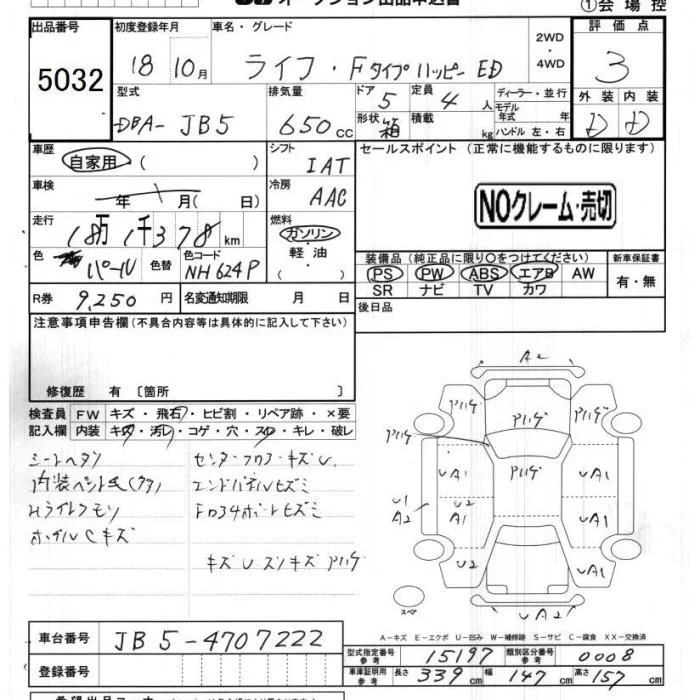 オークション出品申込書
①会場控
出品番号
5032
初度登録年月
18 10月
車名・グレード
ライフ・Fタイプハッピー ED
2WD
4WD
評価点
3
型式
DBA- JB5
排気量
650cc
ドア 5
定員 4人
形状 箱
積載 kg
ディーラー・並行
モデル年式 年
ハンドル 左・右
外装 内装
D D
車歴
自家用 ( )
シフト
IAT
車検
年 月( 日)
冷房
AAC
走行
18万1千378km
燃料
ガソリン
・
軽油
( )
色 パール
色替
色コード NH624P
R券 9,250円
名変通知期限 月 日
セールスポイント (正常に機能するものに限ります)
NOクレーム・売切
装備品 (純正品に限り○をつけてください)
新車保証書
PS PW ABS エアB AW
有・無
SR ナビ TV カワ
後日品
注意事項申告欄(不具合内容等は具体的に記入して下さい)
修復歴 有 〔箇所 〕
検査員記入欄
FW キズ・飛石・ヒビ割・リペア跡・×要
内装 キズ・汚レ・コゲ・穴・スレ・キレ・破レ
シートヘタリ
Hライトクモリ
エンドパネルヒズミ
A2
アハゲ アハゲ アハゲ
アハゲ アハゲ
UA1 UA1
U1
A2
U2
A1
UA1
U2 UA1
UA2
スペア
A-キズ E-エクボ U-凹み W-補修跡 S-サビ C-腐食 XX-交換済
車台番号
JB5-4707222
登録番号
型式指定番号 参考 15197
類別区分番号 参考 0008
車庫証明用 参考 長さ 339cm 幅 147cm 高さ 157cm